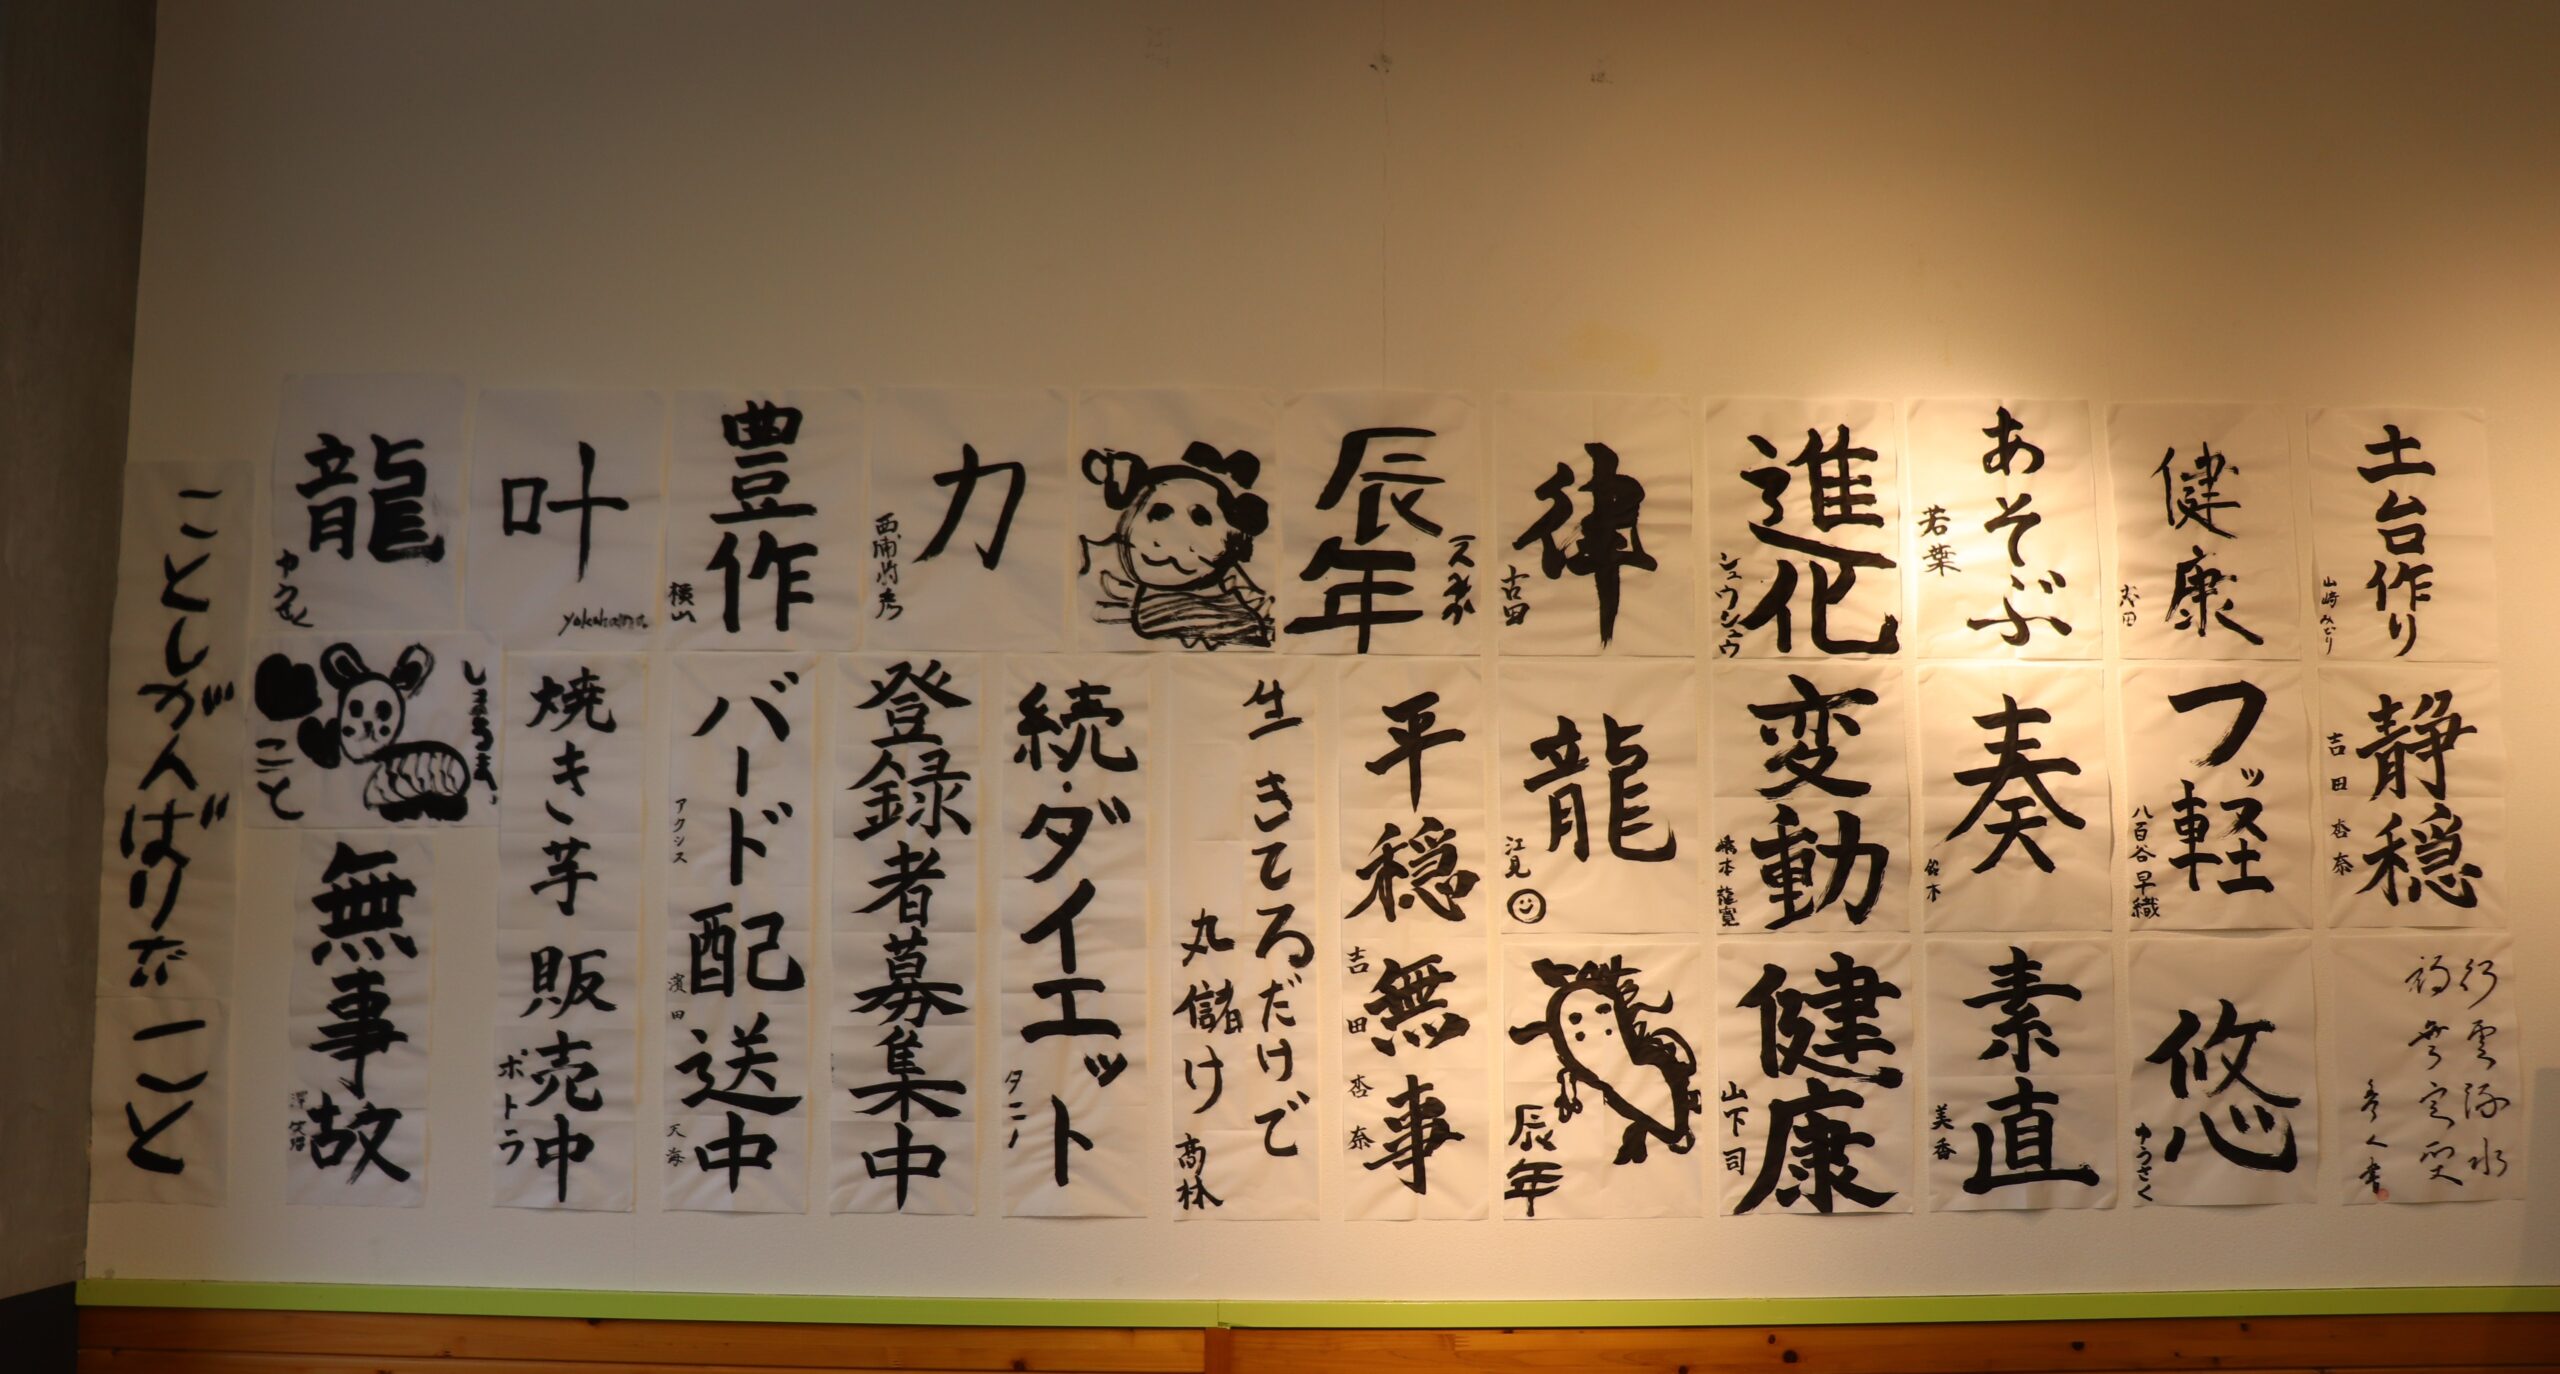 土台作り
山崎みどり
健康
あそぶ
若葉
進化
シュウシュウ
律
古田
辰年
力
豊作
横山
叶
yokohama
龍
静穏
吉田杏奈
フッ軽
八百谷早織
奏
鈴木
変動
橋本龍寛
龍
江見
平穏無事
吉田杏奈
生きてるだけで
丸儲け
高林
続・ダイエット
タニノ
登録者募集中
バード配送中
アクシス
濱田
天海
焼き芋販売中
ポトラ
こと
無事故
行雲流水
悠
ゆうさく
素直
美香
健康
山下司
辰年
ことしがんばりたいこと